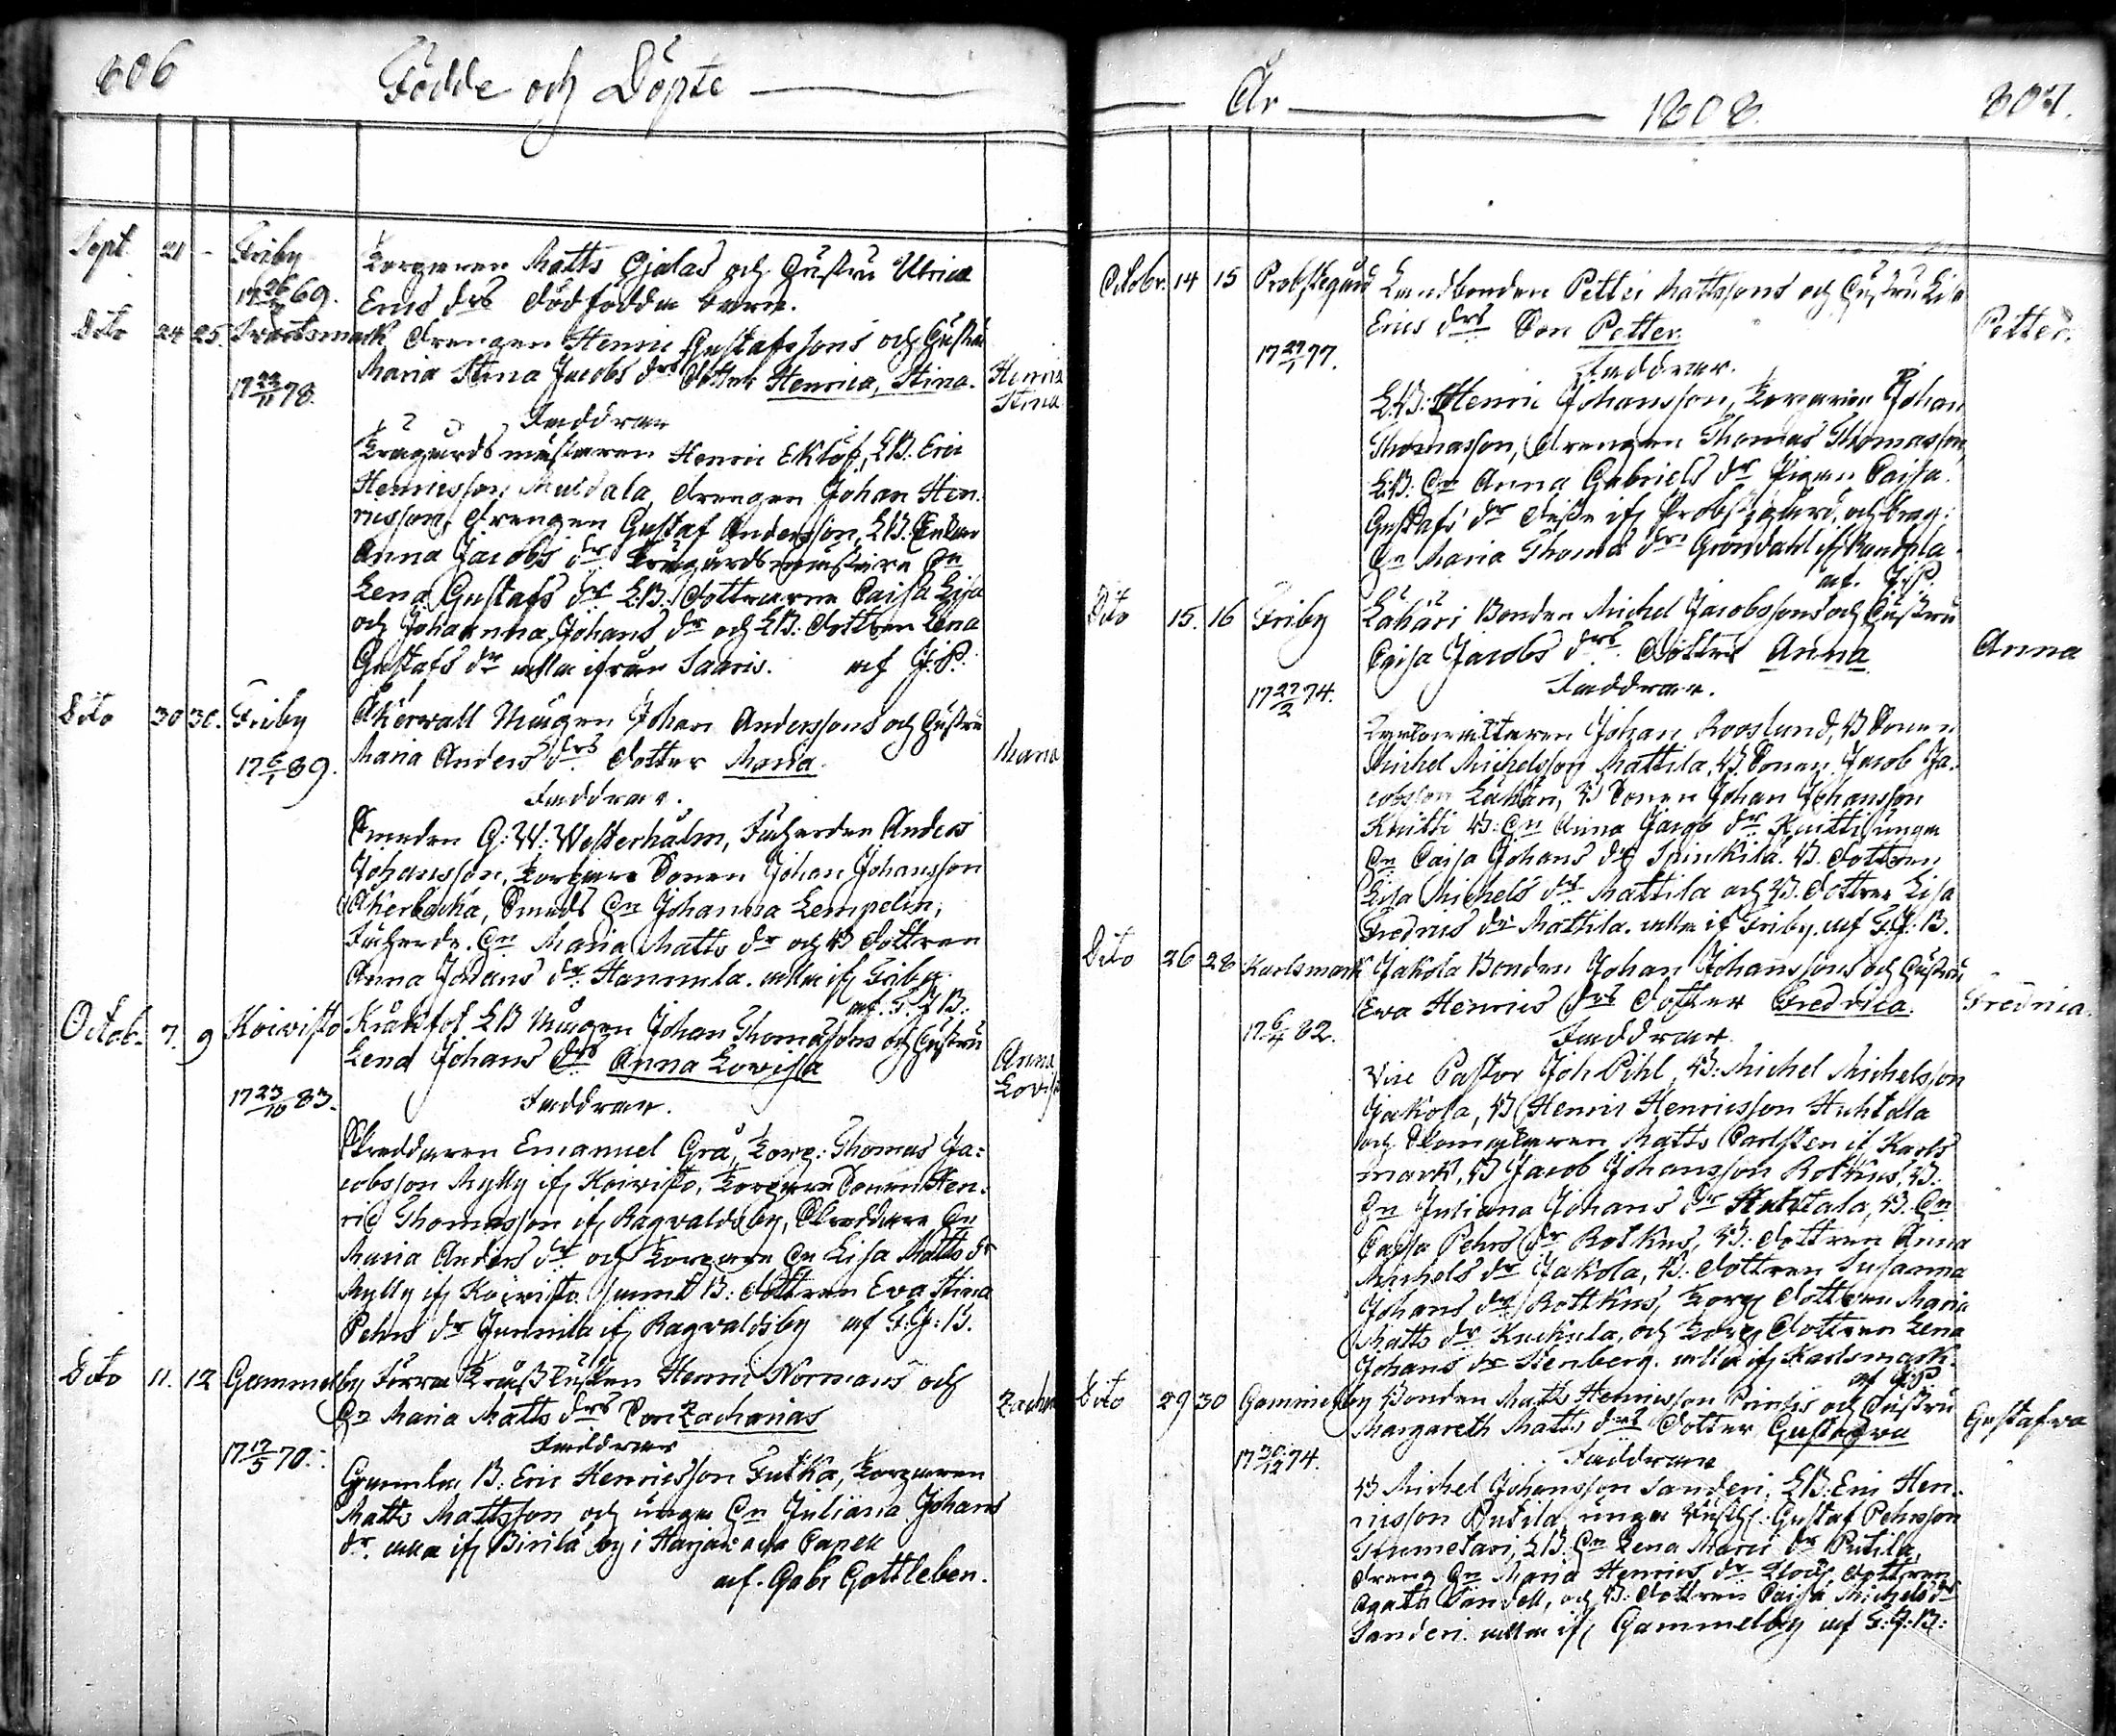 806 Födde och Döpte
Sept. 21 - Friby Torparen Matts Ojalas och Hustru Ulrica
17 26 69. Erics drs dödfödda barn.
Dito 24 25. Svartsmark Drengen Henric Gustafssons och Hustru
17 22/11 78. Maria Stina Jacobs drs Dotter Henrica, Stina. Henrica Stina
Faddrar
Trägårdsmästaren Henric Eklöf, LB. Eric
Henricsson Muidala, drengen Johan Hen-
ricsson, drengen Gustaf Andersson, LB. Enkan
Anna Jacobs dr Trägårdsmästare Hn
Lena Gustafs dr LB. Dottrarne Caisa Lisa
och Johanna Johans dr och LB. Dottren Lena
Gustafs dr alla ifrån Saaris. af J.P.
Dito 30 30. Friby Åkerwall Mågen Johan Anderssons och Hustru
17 6/1 89. Maria Anders drs Dotter Maria. Maria
Faddrar.
Smeden G: W: Westerholm, Fäherden Anders
Johansson, Torpare Sonen Johan Johansson
Åkerbacka, Smeds Hn Johanna Lempelin,
Fäherde. Hn Maria Matts dr och B Dottren
Anna Johans dr Hannula. alla if Friby.
af F. J B:
Octob. 7. 9 Koivisto Kråkfot LB Mågen Johan Thomassons och Hustru
Lena Johans drs Anna Lovisa Anna Lovisa
17 23/10 83. Faddrar.
Skreddaren Emanuel Grå, Torp: Thomas Ja-
cobsson Mylly if Koivisto, Torpare Sonen Hen-
ric Thomasson if Ragvaldsby, Skreddare Hn
Maria Anders dr och Torpare Hn Lisa Matts dr
Mylly if Koivisto samt B: dottren Eva Stina
Pehrs dr Junnila if Ragvaldsby af F: J: B.
Dito 11. 12 Gammelby Förra Henric Normans och
Hn Maria Matts drs Son Zacharias Zachar
17 17/5 70. Faddrar
Gamla B. Eric Henricsson Tutka, Torparen
Matts Mattsson och unga Hn Juliana Johans
dr. alla if Birilä by i Harjavalla Capell
af. Gabr Gottleben.
År 1808. 807.
Octobr. 14 15 Probstegård Landbonden Petter Mattssons och Hustru Lisa
Erics drs Son Petter. Petter.
17 27/1 77. Faddrar.
LB: Henric Johansson, Torparen Johan
Thomasson, drengen Thomas Thomasson,
LB: Hn Anna Gabriels dr Pigan Caisa
Gustafs dr dessa if Probstegård, och
Hn Maria Thomas dr Gröndahl if
af. J:P.
Dito 15. 16 Friby Lähäri Bonden Michel Jacobssons och Hustru
Caisa Jacobs drs Dotter Anna Anna
17 27/2 74. Faddrar.
Johan Rooslund, B Sonen
Michel Michelsson Mattila, B. Sonen Jacob Ja-
cobsson Lähäri, B Sonen Johan Johansson
Knitti B: Hn Anna Jacob dr Knitti unga
Hn Caisa Johans dr Spinkilä. B. Dottren
Lisa Michels dr Mattila och B. Dotter Lisa
Fredrics dr Mattila. alla if Friby. af F.J: B.
Dito 26 28 Karlsmark Jakola Bonden Johan Johanssons och Hustru
Eva Henrics drs Dotter Fredrica. Fredrica.
17 6/4 82. Faddrar.
Vice Pastor Joh Pihl, B. Michel Michelsson
Jakola, B Henric Henricsson Huhtala
och Matts Carlsten if Karls
mark, B Jacob Johansson Rotkus, B.
Hn Juliana Johans dr Huhtala, B. Hn
Caisa Pehrs dr Rotkus, B: dottren Anna
Michels dr Jakola, B. dottren Susanna
Johans dr Rottkus, Torp dottren Maria
Matts dr Kuckula, och Torp Dottren Lena
Johans dr Stenberg. alla if Karlsmark.
af J:P
Dito 29 30 Gammelby Bonden Matts Henricsson Printsis och Hustru
Margareth Matts drs Dotter Gustafva Gustafva
17 30/12 74. Faddrar
B Michel Johansson Sanderi, LB: Eric Hen-
ricsson Putila, unga Gustaf Pehrsson
LB: Hn Lena Marci dr Putila,
dreng Hn Maria Henrics dr dottren
Agatha Sandell, och B. dottren Caisa Michels dr
Sanderi. alla if Gammelby af F: J: B: